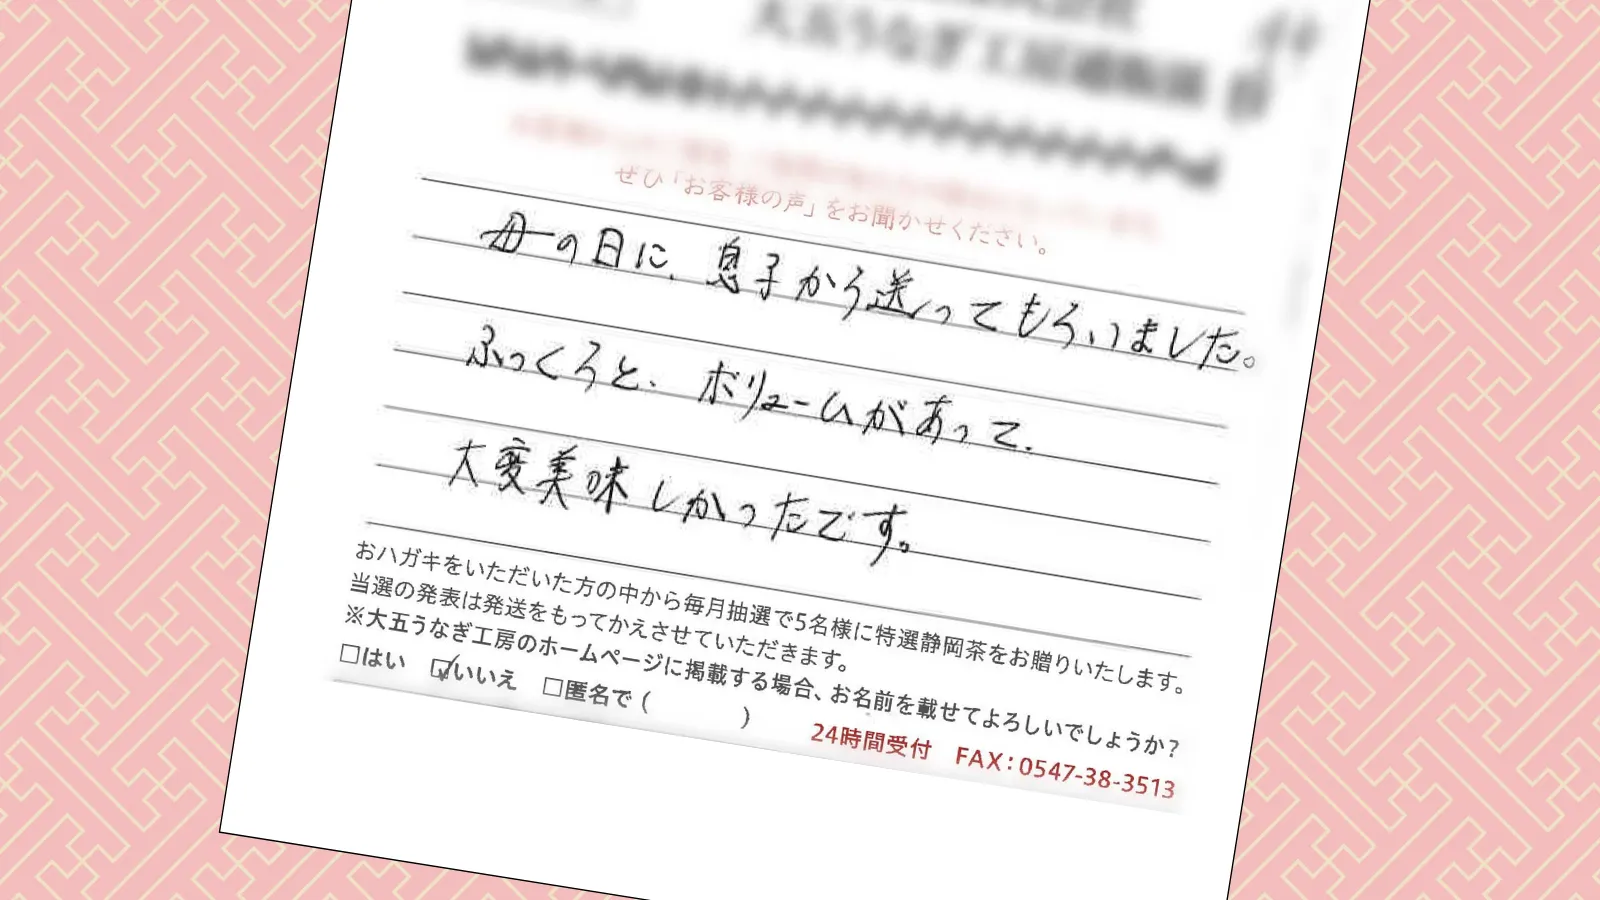 大五うなぎ工房通販係
ぜひ「お客様の声」をお聞かせください。
母の日に、息子から送ってもらいました。
ふっくらと、ボリュームがあって、
大変美味しかったです。
おハガキをいただいた方の中から毎月抽選で5名様に特選静岡茶をお贈りいたします。
当選の発表は発送をもってかえさせていただきます。
※大五うなぎ工房のホームページに掲載する場合、お名前を載せてよろしいでしょうか？
□はい ☑いいえ □匿名で（ ）
24時間受付 FAX：0547-38-3513